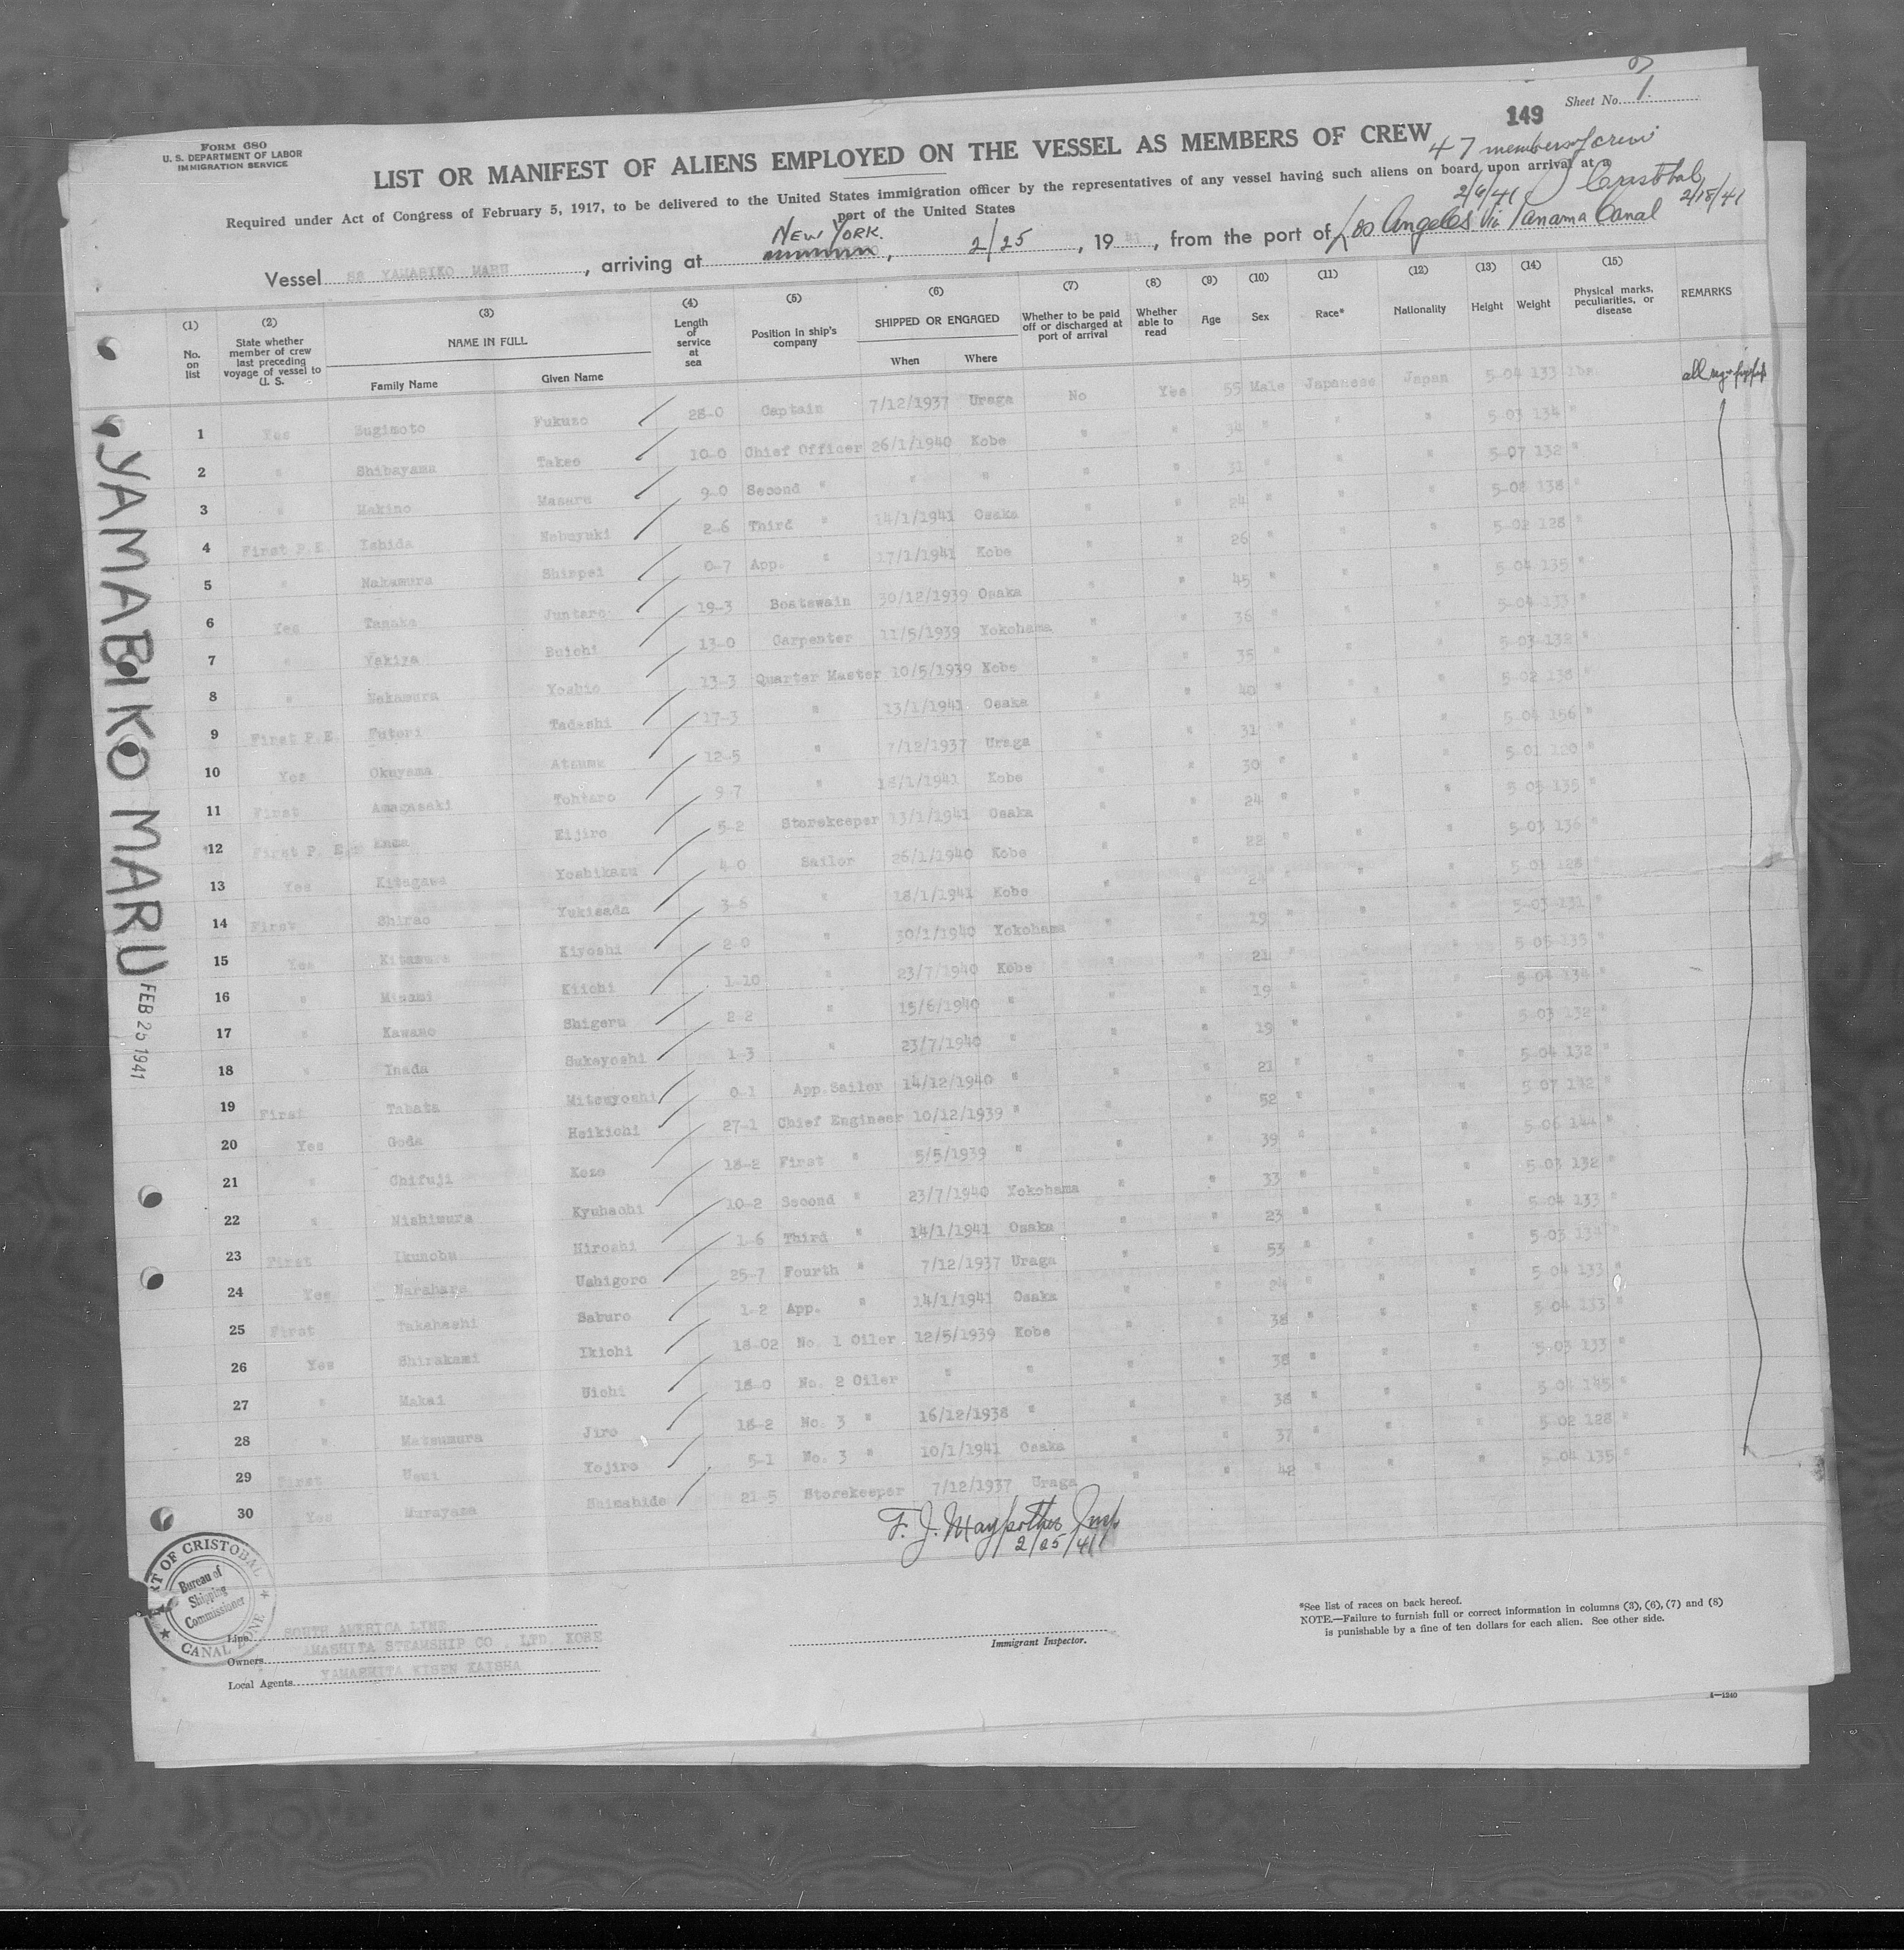 Sheet No. 1
149
FORM 680
U. S. DEPARTMENT OF LABOR
IMMIGRATION SERVICE
LIST OR MANIFEST OF ALIENS EMPLOYED ON THE VESSEL AS MEMBERS OF CREW
47 members of crew
Required under Act of Congress of February 5, 1917, to be delivered to the United States immigration officer by the representatives of any vessel having such aliens on board upon arrival at a
port of the United States
2/6/41 2/18/41
Vessel SS YAMABIKO MARU, arriving at NEW YORK, 2/25, 19 41, from the port of Los Angeles via Panama Canal
(1) (2) (3) (4) (5) (6) (7) (8) (9) (10) (11) (12) (13) (14) (15)
No. on list
State whether member of crew last preceding voyage of vessel to U. S.
NAME IN FULL
Family Name Given Name
Length of service at sea
Position in ship's company
SHIPPED OR ENGAGED
When Where
Whether to be paid off or discharged at port of arrival
Whether able to read
Age
Sex
Race*
Nationality
Height
Weight
Physical marks, peculiarities, or disease
REMARKS
1 Yes Sugimoto Fukuzo 28-0 Captain 7/12/1937 Uraga No Yes 55 Male Japanese Japan 5-04 133 lbs
2 " Shibayama Takeo 10-0 Chief Officer 26/1/1940 Kobe " " 34 " " " 5-03 134 "
3 " Makino Masaru 9-0 Second " " " " " 31 " " " 5-07 132 "
4 First P.E. Ishida Nobuyuki 2-6 Third " 14/1/1941 Osaka " " 24 " " " 5-08 138 "
5 " Nakamura Shinpei 0-7 App. " 17/1/1941 Kobe " " 26 " " " 5-02 128 "
6 Yes Tanaka Juntaro 19-3 Boatswain 30/12/1939 Osaka " " 45 " " " 5-04 135 "
7 " Yakiya Boichi 13-0 Carpenter 11/5/1939 Yokohama " " 36 " " " 5-04 133 "
8 " Nakamura Yoshio 13-3 Quarter Master 10/5/1939 Kobe " " 35 " " " 5-03 132 "
9 First P.E. Futori Tadashi 17-3 " 13/1/1941 Osaka " " 40 " " " 5-02 138 "
10 Yes Okuyama Atsumu 12-5 " 7/12/1937 Uraga " " 31 " " " 5-04 156 "
11 First Amagasaki Tohtaro 9-7 " 18/1/1941 Kobe " " 30 " " " 5-01 120 "
12 First P. E. Eijiro 5-2 Storekeeper 13/1/1941 Osaka " " 24 " " " 5-05 135 "
13 Yes Kitagawa Yoshikazu 4-0 Sailor 26/1/1940 Kobe " " 22 " " " 5-03 136 "
14 First Shirao Yukisada 3-6 " 18/1/1941 Kobe " " 24 " " " 5-01 128 "
15 Yes Kitamura Kiyoshi 2-0 " 30/1/1940 Yokohama " " 19 " " " 5-03 131 "
16 " Minami Kiichi 1-10 " 23/7/1940 Kobe " " 21 " " " 5-05 135 "
17 " Kawano Shigeru 2-2 " 15/6/1940 " " " 19 " " " 5-04 134 "
18 " Inada Sukeyoshi 1-3 " 23/7/1940 " " " 19 " " " 5-03 132 "
19 First Tabata Mitsuyoshi 0-1 App.Sailor 14/12/1940 " " " 21 " " " 5-04 132 "
20 Yes Goda Heikichi 27-1 Chief Engineer 10/12/1939 " " " 52 " " " 5-07 142 "
21 " Chifuji Kozo 18-2 First " 5/5/1939 " " " 39 " " " 5-06 144 "
22 " Nishimura Kyuhachi 10-2 Second " 23/7/1940 Yokohama " " 33 " " " 5-03 132 "
23 First Ikunobu Hiroshi 1-6 Third " 14/1/1941 Osaka " " 23 " " " 5-04 133 "
24 Yes Narahara Ushigoro 25-7 Fourth " 7/12/1937 Uraga " " 53 " " " 5-03 134 "
25 First Takahashi Saburo 1-2 App. " 14/1/1941 Osaka " " 24 " " " 5-04 133 "
26 Yes Shirakami Ikichi 18-02 No. 1 Oiler 12/5/1939 Kobe " " 38 " " " 5-04 133 "
27 " Makai Uichi 18-0 No. 2 Oiler " " " " 38 " " " 5-03 133 "
28 " Matsumura Jiro 18-2 No. 3 " 16/12/1938 " " " 38 " " " 5-04 145 "
29 First Uemi Yojiro 5-1 No. 3 " 10/1/1941 Osaka " " 37 " " " 5-02 128 "
30 Yes Murayama Shimahide 21-5 Storekeeper 7/12/1937 Uraga " " 42 " " " 5-04 135 "
YAMABIKO MARU FEB 25 1941
2/25/41
PORT OF CRISTOBAL
Bureau of Shipping Commissioner
CANAL ZONE
Line SOUTH AMERICA LINE
Owners YAMASHITA STEAMSHIP CO., LTD. KOBE
Local Agents YAMASHITA KISEN KAISHA
Immigrant Inspector.
*See list of races on back hereof.
NOTE.—Failure to furnish full or correct information in columns (3), (6), (7) and (8)
is punishable by a fine of ten dollars for each alien. See other side.
4—1240